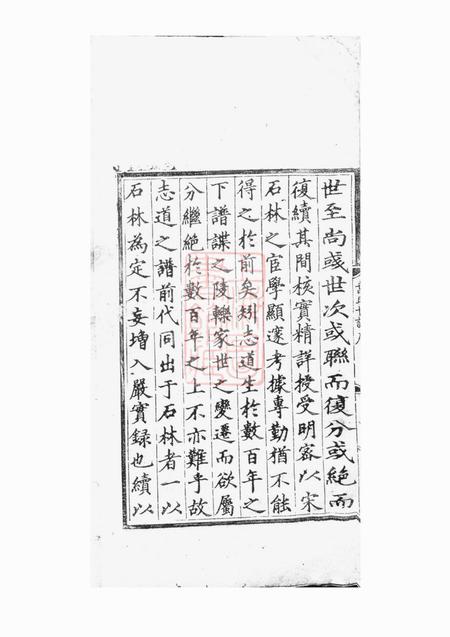 世至尚彧世次或聯而復分或絶而
復續其間核實精詳授受明密以宋
石林之宦學顯邃考據專勤猶不能
得之於前矣矧志道生於數百年之
下譜諜之陵轢家世之變遷而欲屬
分繼絕於數百年之上不亦難乎故
志道之譜前代同出于石林者一以
石林為定不妄増入嚴實録也續以